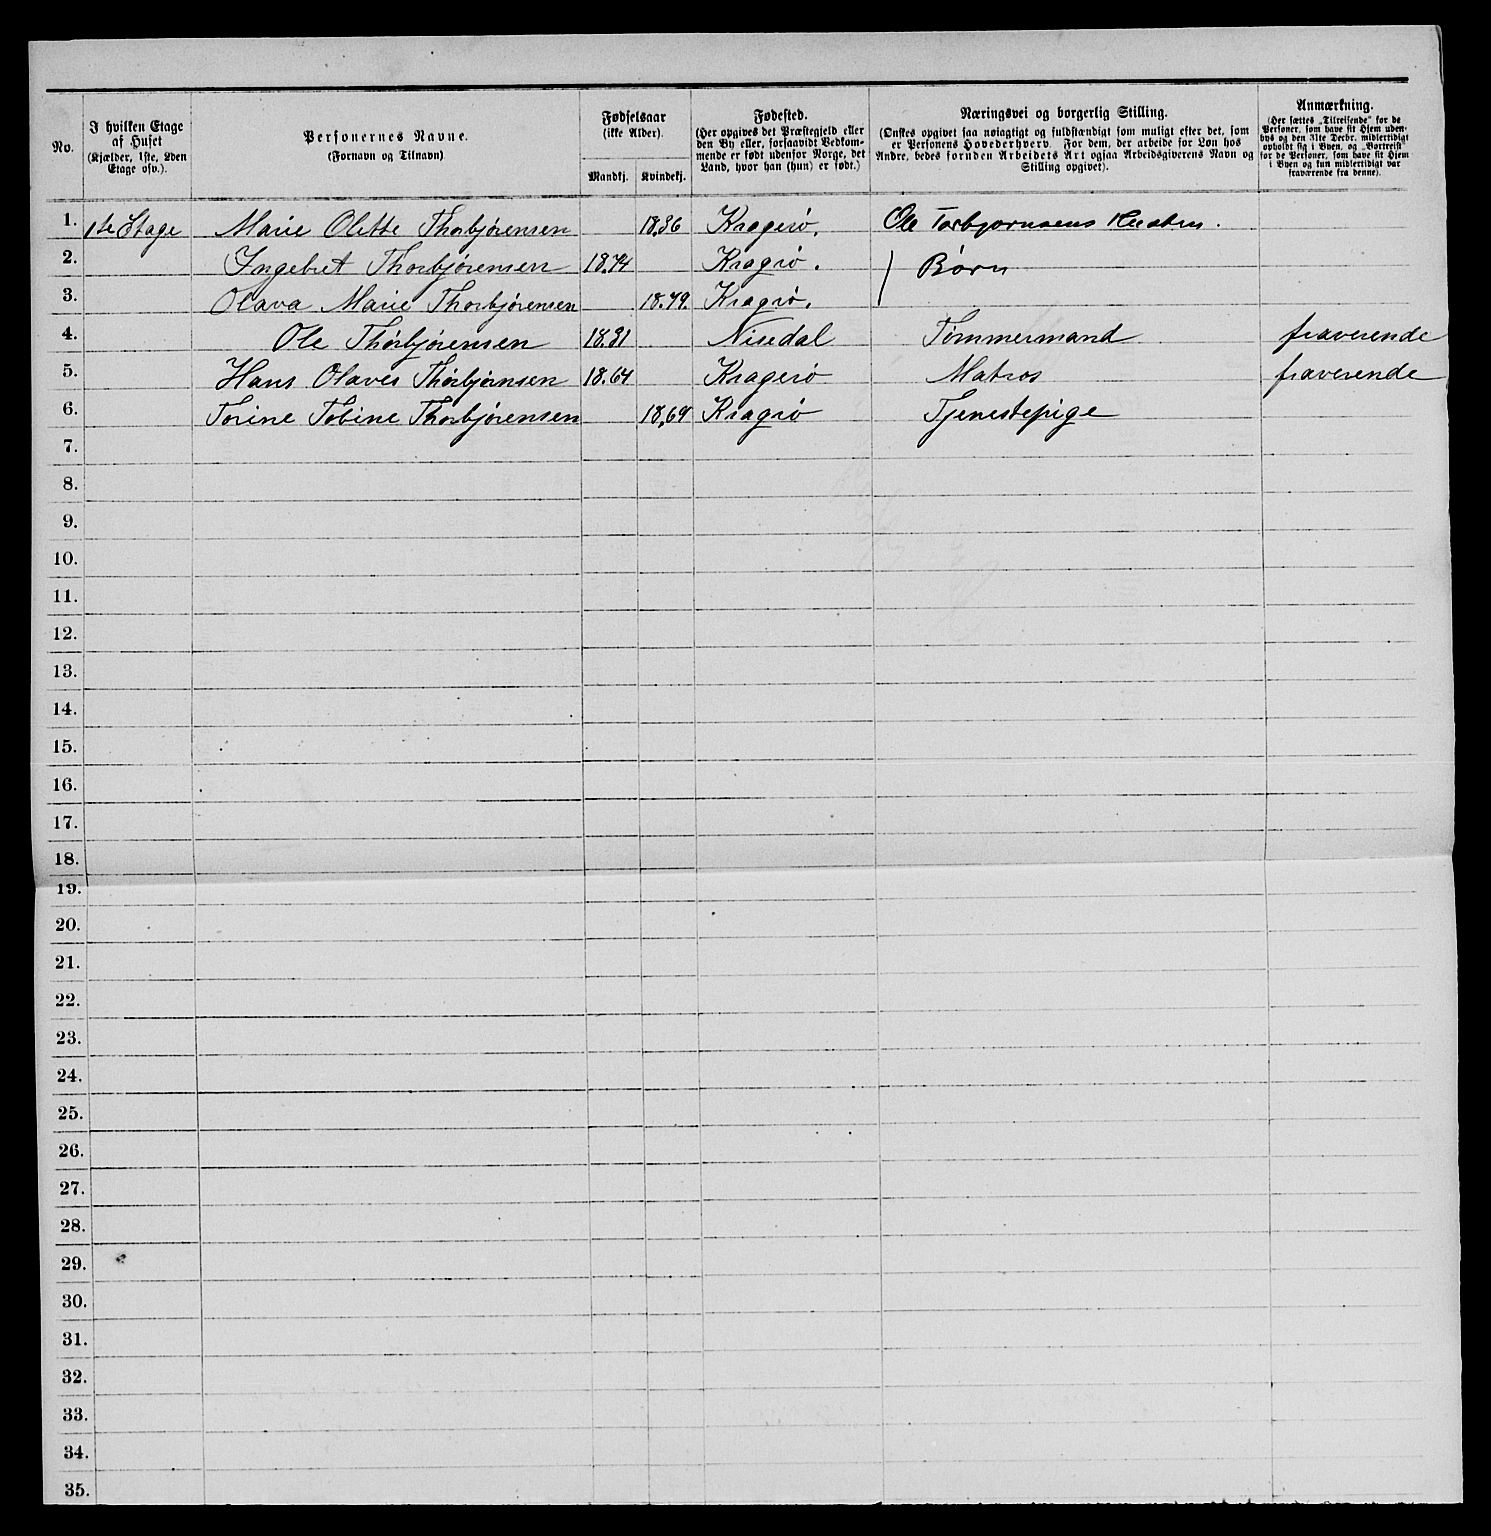 No.
I hvilken Etage
af Huset
(Kjælder, 1ste, 2den
Etage osv.).
Personernes Navne.
(Fornavn og Tilnavn)
Fødselsaar
(ikke Alder).
Mandkj. Kvindekj.
Fødested.
(Her opgives det Præstegjeld eller
den By eller, forsaavidt Vedkom-
mende er født udenfor Norge, det
Land, hvor han (hun) er født.)
Næringsvei og borgerlig Stilling.
(Ønskes opgivet saa nøiagtigt og fuldstændigt som muligt efter det, som
er Personens Hovederhverv. For dem, der arbeide for Løn hos
Andre, bedes foruden Arbeidets Art ogsaa Arbeidsgiverens Navn og
Stilling opgivet).
Anmærkning.
(Her sættes „Tilreisende" for de
Personer, som have sit Hjem uden-
bys og den 31te Decbr. midlertidigt
opholdt sig i Byen, og „Bortreist"
for de Personer, som have sit Hjem
i Byen og kun midlertidigt var
fraværende fra denne).
1. 1ste Etage Marie Olette Thorbjørensen 1836 Kragerø. Ole Torbjørnsens Hustru.
2. Ingebret Thorbjørensen 1874 Kragrø. Børn
3. Olava Marie Thorbjørensen 1879. Kragrø.
4. Ole Thorbjørensen 1831 Nisedal Tømmermand fraverende
5. Hans Olaves Thorbjørnsen 1864 Kragerø Matros fraverende
6. Torine Tobine Thorbjørensen 1869 Kragrø Tjenestepige
7.
8.
9.
10.
11.
12.
13.
14.
15.
16.
17.
18.
19.
20.
21.
22.
23.
24.
25.
26.
27.
28.
29.
30.
31.
32.
33.
34.
35.